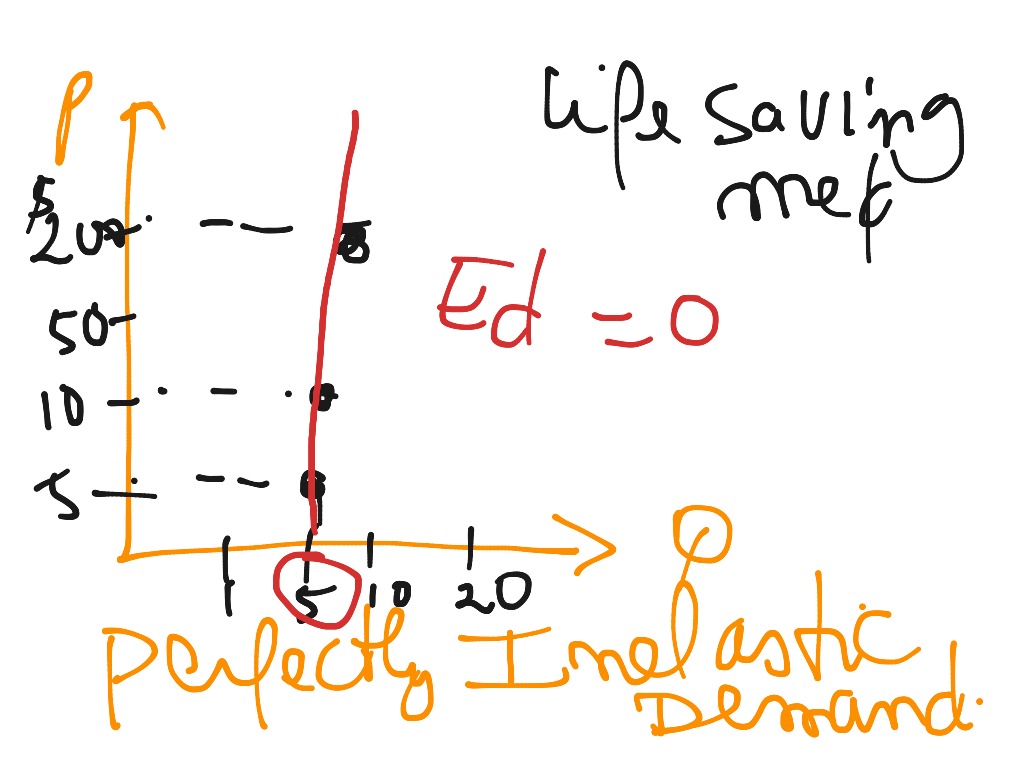 P
Life saving
med
$
200
50
Ed = 0
10
5
1 5 10 20
Q
Perfectly Inelastic
Demand.